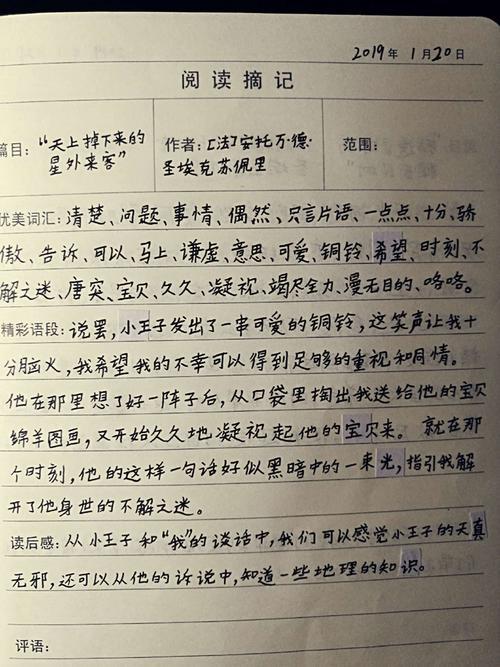 2019年 1月20日
阅读摘记
篇目：“天上掉下来的星外来客” 作者：[法]安托万·德·圣埃克苏佩里 范围：
优美词汇：清楚、问题、事情、偶然、只言片语、一点点、十分、骄
傲、告诉、可以、马上、谦虚、意思、可爱、铜铃、希望、时刻、不
解之迷、唐突、宝贝、久久、凝视、竭尽全力、漫无目的、咯咯。
精彩语段：说罢，小王子发出了一串可爱的铜铃，这笑声让我十
分脑火，我希望我的不幸可以得到足够的重视和同情。
他在那里想了好一阵子后，从口袋里掏出我送给他的宝贝
绵羊图画，又开始久久地凝视起他的宝贝来。就在那
个时刻，他的这样一句话好似黑暗中的一束光，指引我解
开了他身世的不解之迷。
读后感：从小王子和“我”的谈话中，我们可以感觉小王子的天真
无邪，还可以从他的诉说中，知道一些地理的知识。
评语：